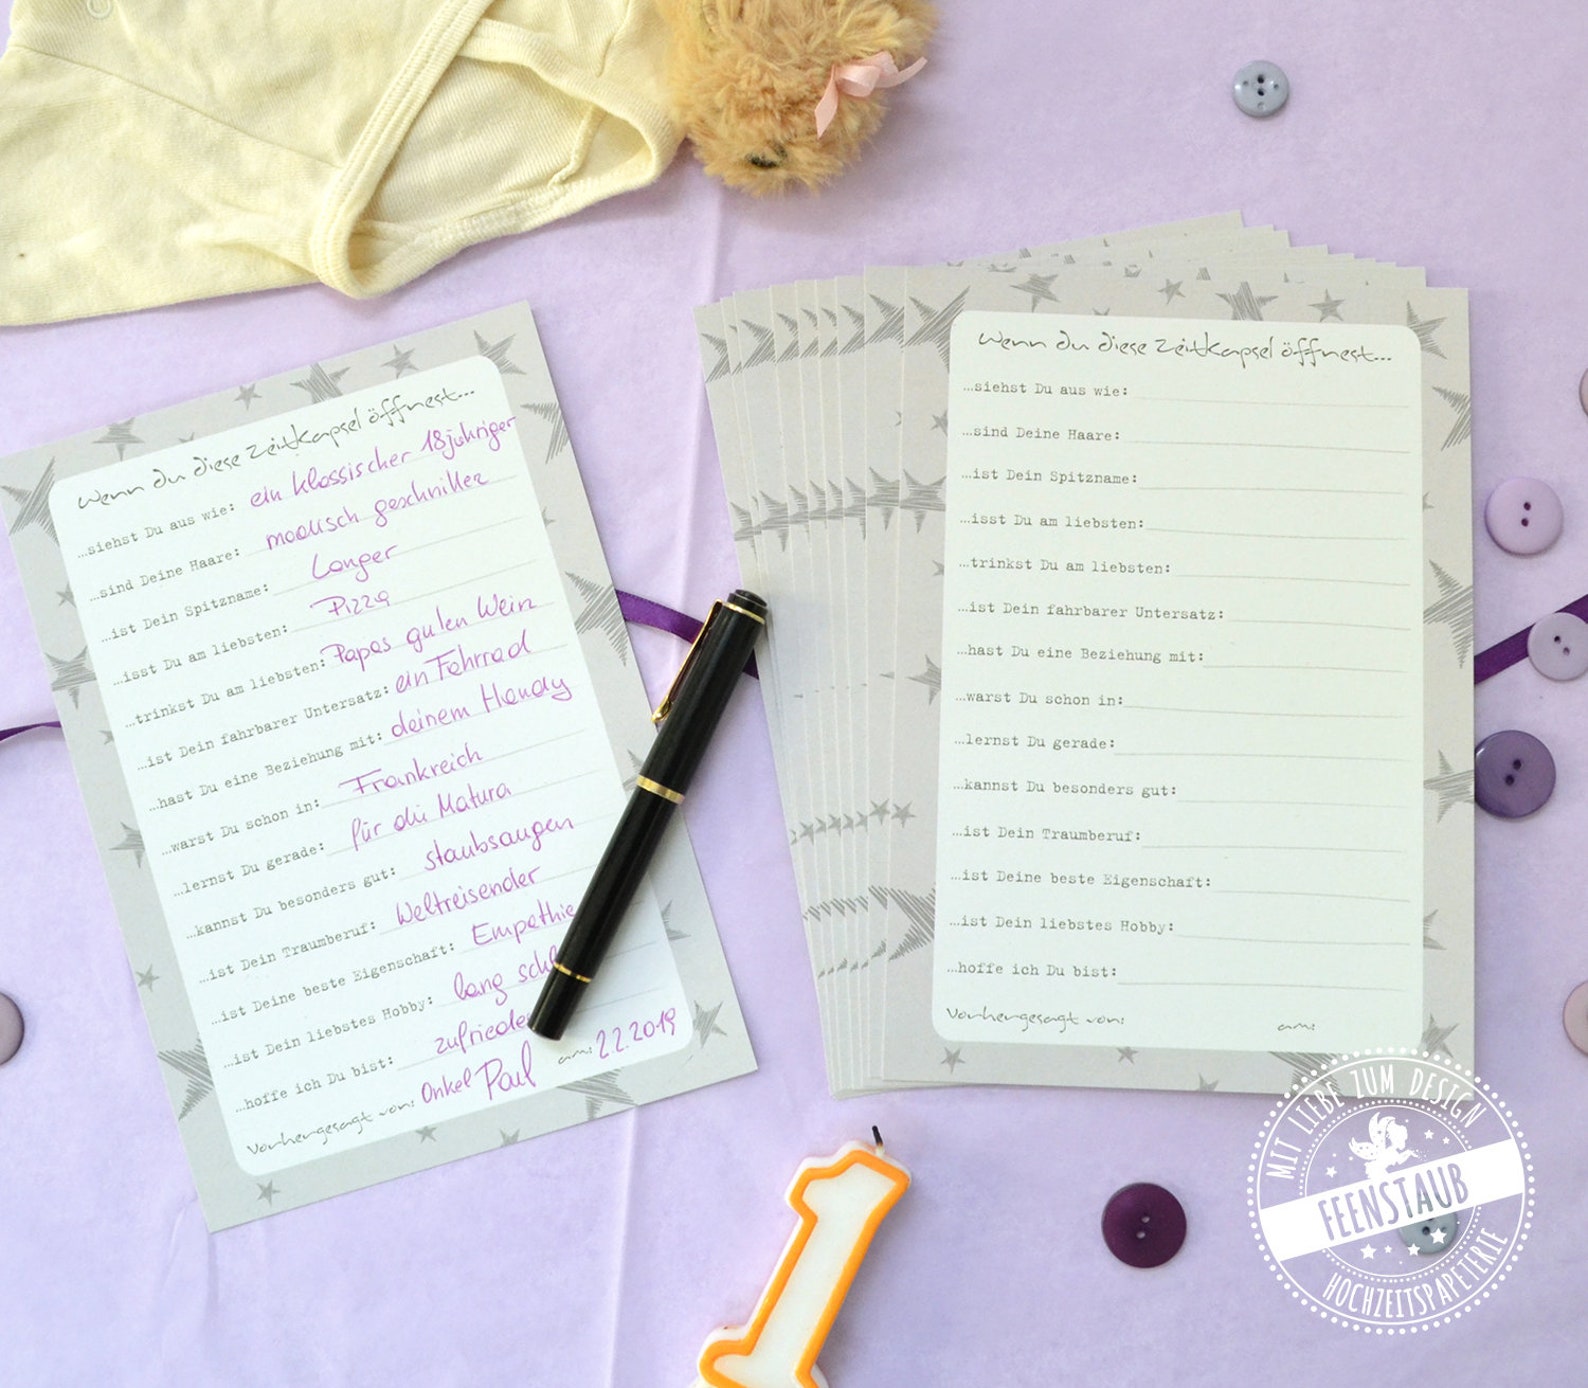 Wenn du diese Zeitkapsel öffnest...
...siehst Du aus wie: ein klassischer 18jähriger
...sind Deine Haare: modisch geschnitten
...ist Dein Spitzname: Langer
...isst Du am liebsten: Pizza
...trinkst Du am liebsten: Papas guten Wein
...ist Dein fahrbarer Untersatz: ein Fahrrad
...hast Du eine Beziehung mit: deinem Handy
...warst Du schon in: Frankreich
...lernst Du gerade: für die Matura
...kannst Du besonders gut: staubsaugen
...ist Dein Traumberuf: Weltreisender
...ist Deine beste Eigenschaft: Empathie
...ist Dein liebstes Hobby: lang
...hoffe ich Du bist:
Vorhergesagt von: Onkel Paul am: 2.2.2019
Wenn du diese Zeitkapsel öffnest...
...siehst Du aus wie:
...sind Deine Haare:
...ist Dein Spitzname:
...isst Du am liebsten:
...trinkst Du am liebsten:
...ist Dein fahrbarer Untersatz:
...hast Du eine Beziehung mit:
...warst Du schon in:
...lernst Du gerade:
...kannst Du besonders gut:
...ist Dein Traumberuf:
...ist Deine beste Eigenschaft:
...ist Dein liebstes Hobby:
...hoffe ich Du bist:
Vorhergesagt von: am:
1
MIT LIEBE ZUM DESIGN
FEENSTAUB
HOCHZEITSPAPETERIE